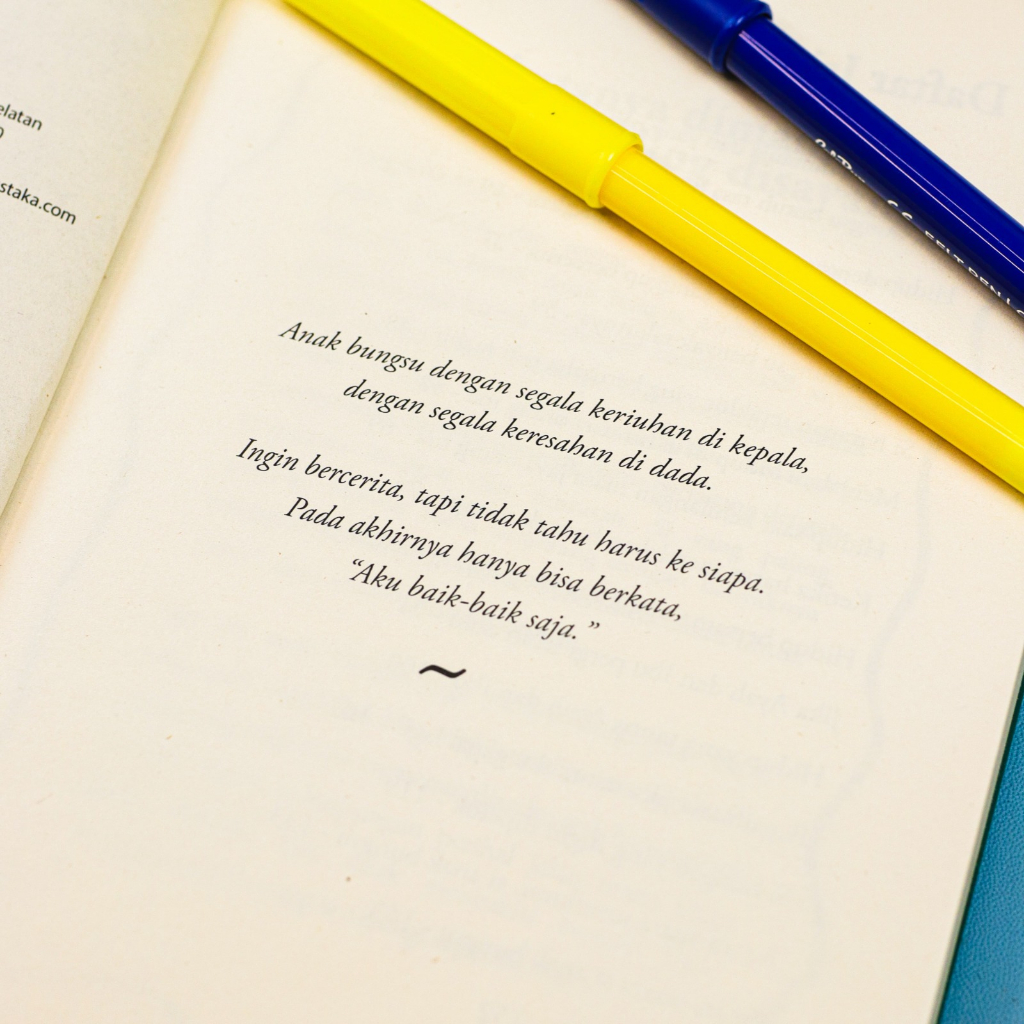 elatan
staka.com
Anak bungsu dengan segala keriuhan di kepala,
dengan segala keresahan di dada.
Ingin bercerita, tapi tidak tahu harus ke siapa.
Pada akhirnya hanya bisa berkata,
“Aku baik-baik saja.”
~